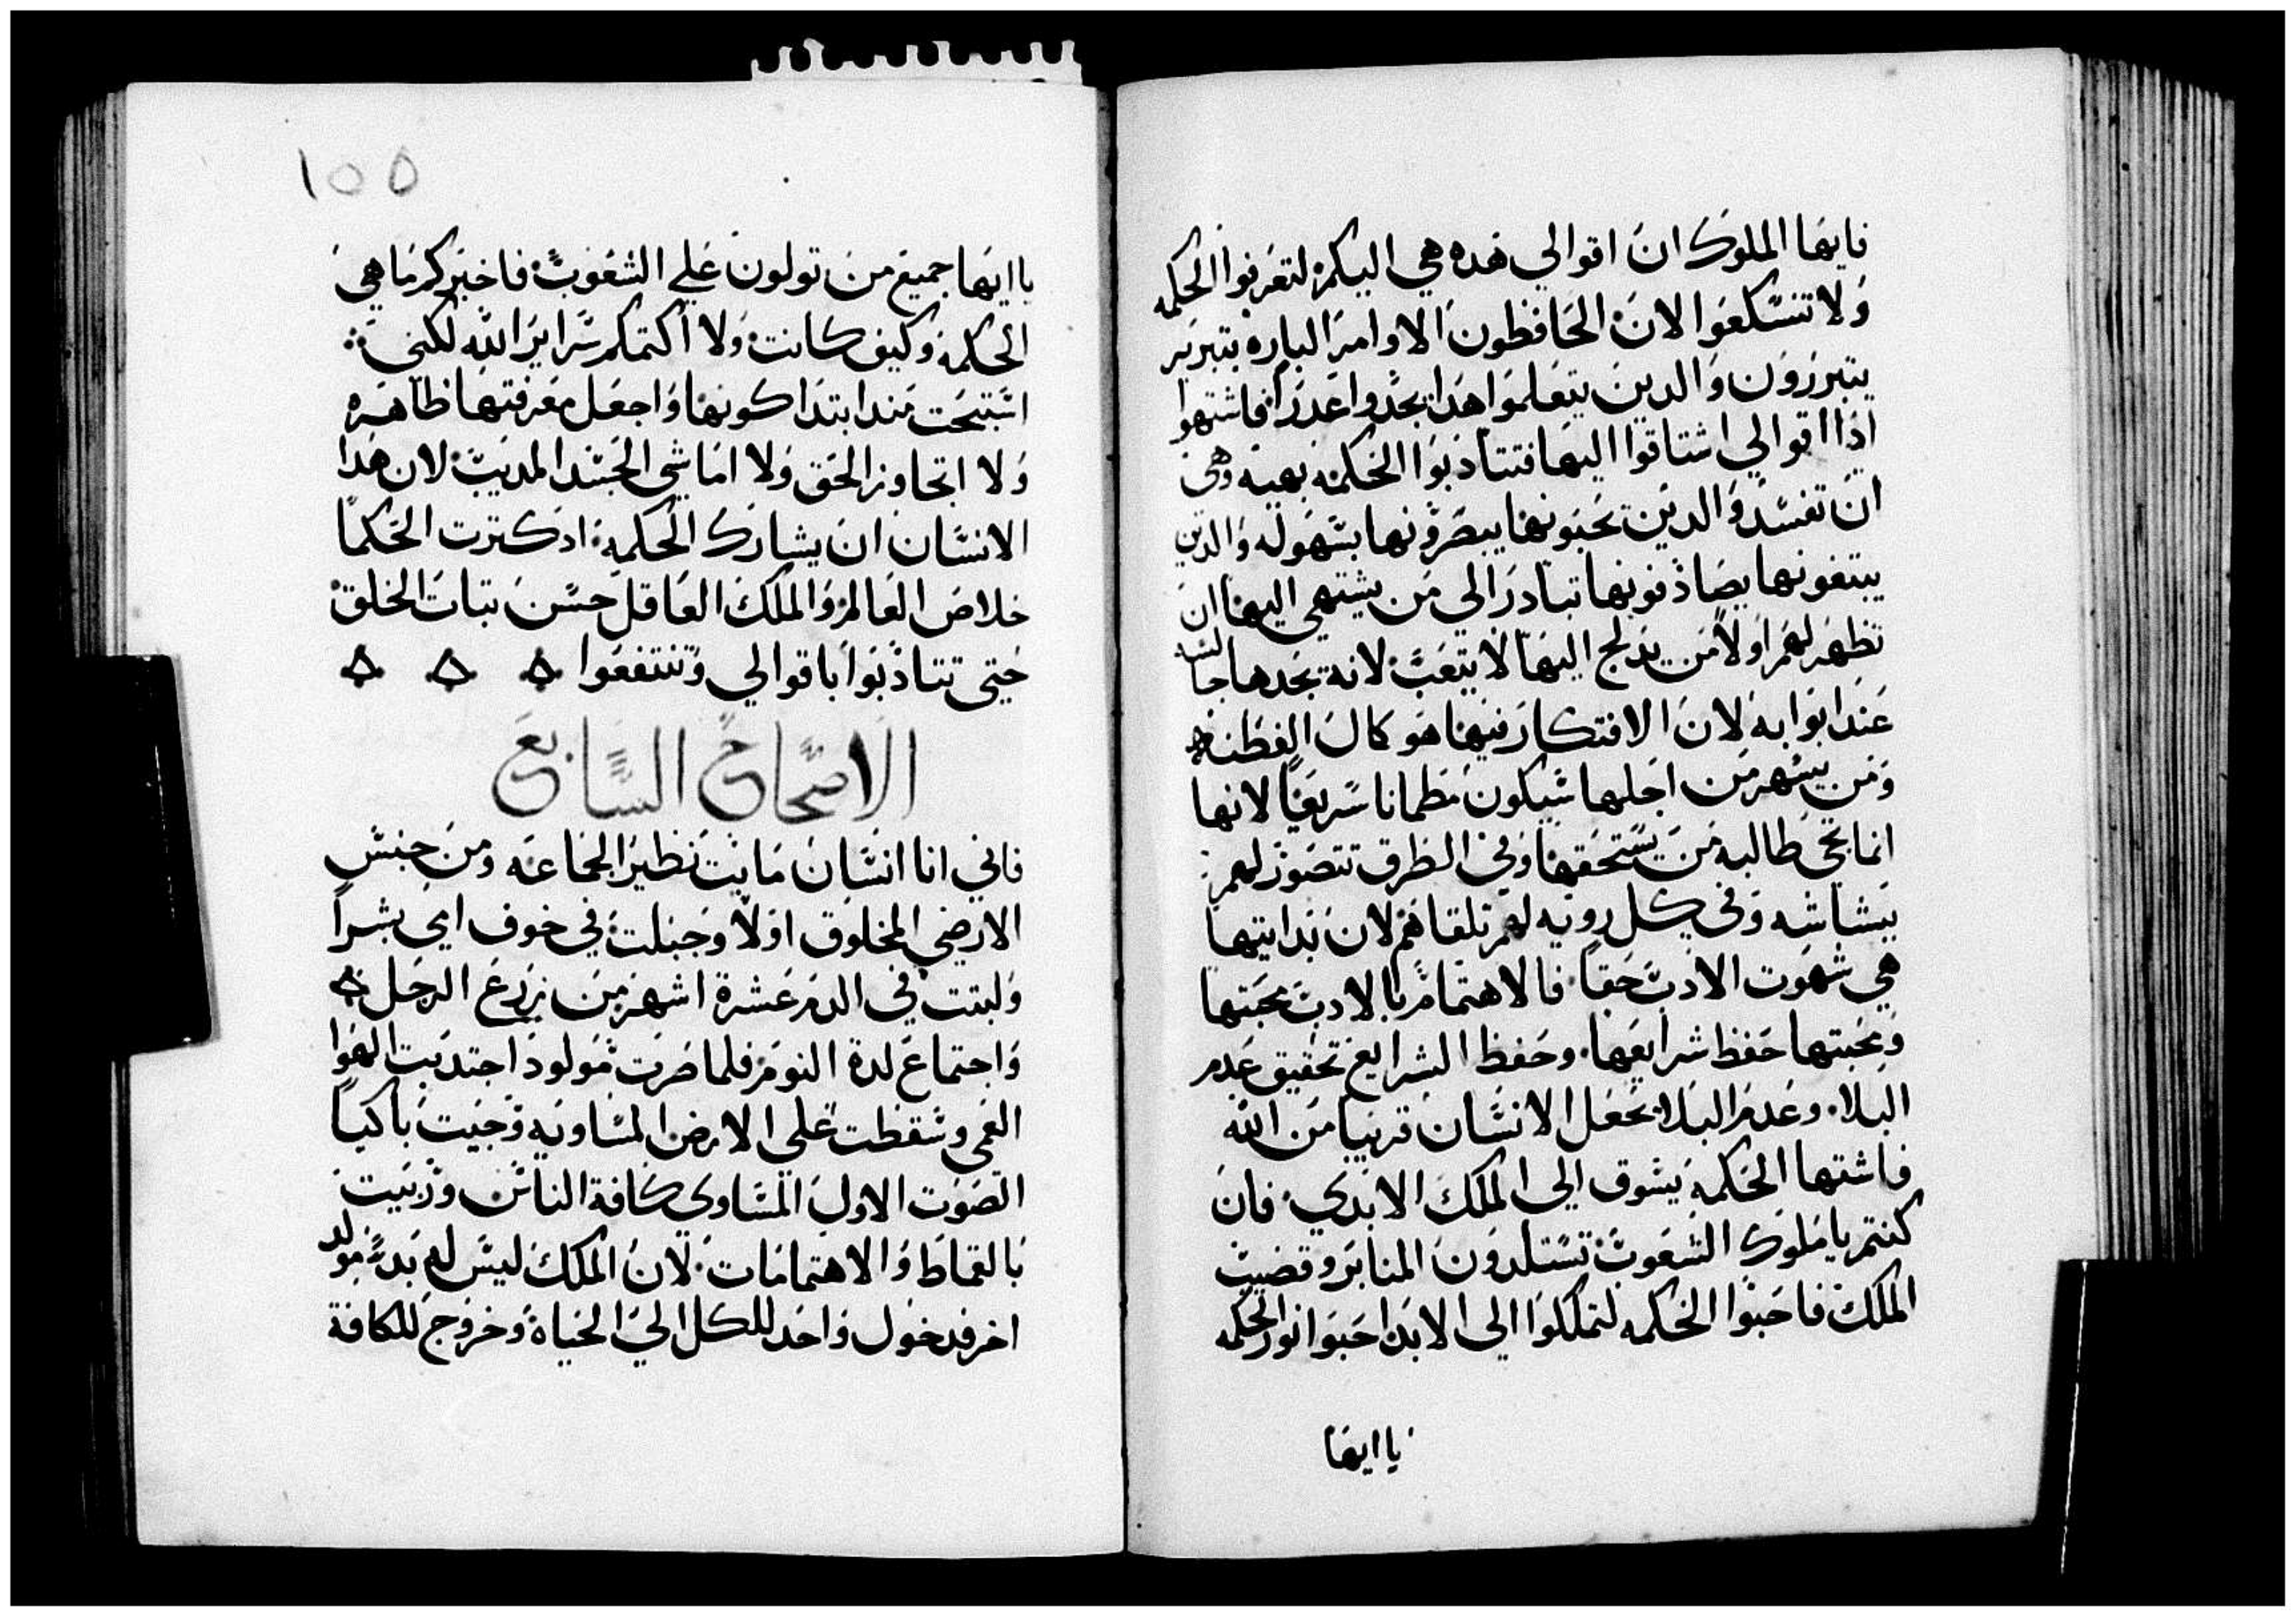 فايها الملوك ان اقوالي هده هي اليكم لتعرفوا الحكمه
ولا تتسكعوا لان الحافظون الاوامر الباره بتبرير
يتبررون والدين يتعلموا هدا يجدوا عدرا فاشتهوا
اذا اقوالي اشتاقوا اليها فتتادبوا الحكمه بهيه وهي
ان تفسد والدين يحبونها يبصرونها بسهوله والدين
يبتغونها يصادفونها تبادر الي من يشتهي اليها ان
تظهر لهم اولا من يدلج اليها لا يتعب لانه يجدها جالسه
عند ابوابه لان الافتكار فيها هو كمال الفطنه
ومن يسهر من اجلها سيكون مطمانا سريعا لانها
انما تجي طالبه من يستحقها وفي الطرق تتصور لهم
ببشاشه وفي كل رويه لهم تلقاهم لان بدايتها
هي شهوت الادب حقا فالاهتمام بالادب محبتها
ومحبتها حفظ شرايعها وحفظ الشرايع تحقيق عدم
البلا وعدم البلا يجعل الانسان قريبا من الله
فاشتها الحكمه يشوق الي الملك الابدي فان
كنتم يا ملوك الشعوب تستلدون المنابر وقضيب
الملك فاحبوا الحكمه لتملكوا الي الابد احبوا نور الحكمه
يا ايها
١٥٥
يا ايها جميع من تولون علي الشعوب فاخبركم ما هي
الحكمه وكيف كانت ولا اكتمكم سراير الله لكني
استبحت مند ابتدا كونها واجعل معرفتها ظاهره
ولا اتجاوز الحق ولا اماشي الحسد المديب لان هدا
الانسان ان يشارك الحكمه اد كترت الحكما
خلاص العالم والملك العاقل حسن تبات الخلق
حتي تتادبوا باقوالي وتنتفعوا
الاصحاح السابع
فاني انا انسان مايت نظير الجماعه ومن جنس
الارضي المخلوق اولا وجبلت في خوف امي بشرا
ولبتت في الدم عشرة اشهر من زرع الرجل
واجتماع لدة النوم فلما صرت مولود اجتدبت الهوا
العمي وسقطت علي الارض المساويه وجيت باكيا
الصوت الاول المساوي كافة الناس وربيت
بالقماط والاهتمامات لان الملك ليس له بدء مولد
اخر فدخول واحد للكل الي الحياة وخروج للكافة